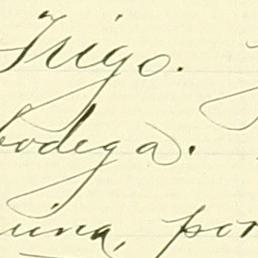 Trigo.
bodega.
una, por